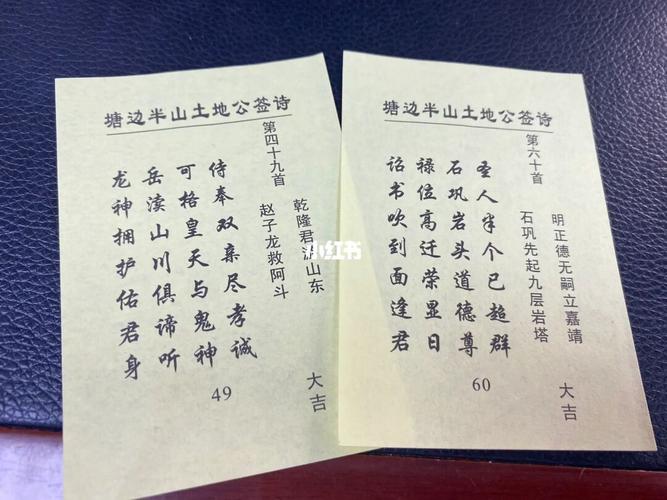 塘边半山土地公签诗
第四十九首
乾隆君游山东
赵子龙救阿斗
侍奉双亲尽孝诚
可格皇天与鬼神
岳渎山川俱谛听
龙神拥护佑君身
49
大吉
塘边半山土地公签诗
第六十首
明正德无嗣立嘉靖
石巩先起九层岩塔
圣人半个已超群
石巩岩头道德尊
禄位高迁荣显日
诏书吹到面逢君
60
大吉
小红书